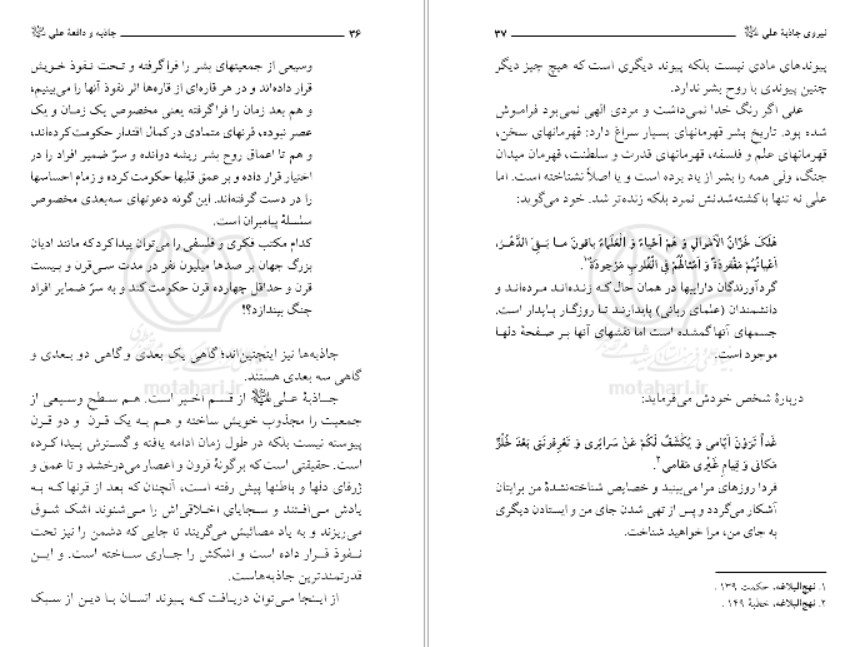 ۳۶ جاذبه و دافعهٔ علی ﷷ
وسیعی از جمعیتهای بشر را فراگرفته و تحت نفوذ خویش
قرار داده‌اند و در هر قاره‌ای از قاره‌ها اثر نفوذ آنها را می‌بینیم،
و هم بعد زمان را فراگرفته یعنی مخصوص یک زمان و یک
عصر نبوده، قرنهای متمادی در کمال اقتدار حکومت کرده‌اند،
و هم تا اعماق روح بشر ریشه دوانده و سرّ ضمیر افراد را در
اختیار قرار داده و بر عمق قلبها حکومت کرده و زمام احساسها
را در دست گرفته‌اند. این گونه دعوتهای سه‌بعدی مخصوص
سلسلهٔ پیامبران است.
کدام مکتب فکری و فلسفی را می‌توان پیدا کرد که مانند ادیان
بزرگ جهان بر صدها میلیون نفر در مدت سی قرن و بیست
قرن و حداقل چهارده قرن حکومت کند و به سرّ ضمایر افراد
چنگ بیندازد؟!
جاذبه‌ها نیز اینچنین‌اند؛ گاهی یک بعدی و گاهی دو بعدی و
گاهی سه بعدی هستند.
جاذبهٔ علی از قسم اخیر است. هم سطح وسیعی از
جمعیت را مجذوب خویش ساخته و هم به یک قرن و دو قرن
پیوسته نیست بلکه در طول زمان ادامه یافته و گسترش پیدا کرده
است. حقیقتی است که بر گونهٔ قرون و اعصار می‌درخشد و تا عمق و
ژرفای دلها و باطنها پیش رفته است، آنچنان که بعد از قرنها که به
یادش می‌افتند و سجایای اخلاقی‌اش را می‌شنوند اشک شوق
می‌ریزند و به یاد مصائبش می‌گریند تا جایی که دشمن را نیز تحت
نفوذ قرار داده است و اشکش را جاری ساخته است. و این
قدرتمندترین جاذبه‌هاست.
از اینجا می‌توان دریافت که پیوند انسان با دین از سبک
motahari.ir
نیروی جاذبهٔ علی ۳۷
پیوندهای مادی نیست بلکه پیوند دیگری است که هیچ چیز دیگر
چنین پیوندی با روح بشر ندارد.
علی اگر رنگ خدا نمی‌داشت و مردی الهی نمی‌بود فراموش
شده بود. تاریخ بشر قهرمانهای بسیار سراغ دارد: قهرمانهای سخن،
قهرمانهای علم و فلسفه، قهرمانهای قدرت و سلطنت، قهرمان میدان
جنگ، ولی همه را بشر از یاد برده است و یا اصلاً نشناخته است. اما
علی نه تنها با کشته‌شدنش نمرد بلکه زنده‌تر شد. خود می‌گوید:
هَلَکَ خُزّانُ الْاَمْوالِ وَ هُمْ اَحْیاءٌ وَ الْعُلَماءُ باقونَ ما بَقِیَ الدَّهْرُ،
اَعْیانُهُمْ مَفْقودَةٌ وَ اَمْثالُهُمْ فِی الْقُلوبِ مَوْجودَةٌ ۱.
گردآورندگان داراییها در همان حال که زنده‌اند مرده‌اند و
دانشمندان (علمای ربانی) پایدارند تا روزگار پایدار است.
جسمهای آنها گمشده است اما نقشهای آنها بر صفحهٔ دلها
موجود است.
دربارهٔ شخص خودش می‌فرماید:
غَداً تَرَوْنَ اَیّامی وَ یُکْشَفُ لَکُمْ عَنْ سَرائِری وَ تَعْرِفونَنی بَعْدَ خُلُوِّ
مَکانی وَ قِیامِ غَیْری مَقامی ۲.
فردا روزهای مرا می‌بینید و خصایص شناخته‌نشدهٔ من برایتان
آشکار می‌گردد و پس از تهی شدن جای من و ایستادن دیگری
به جای من، مرا خواهید شناخت.
۱. نهج‌البلاغه، حکمت ۱۳۹.
۲. نهج‌البلاغه، خطبهٔ ۱۴۹.
motahari.ir